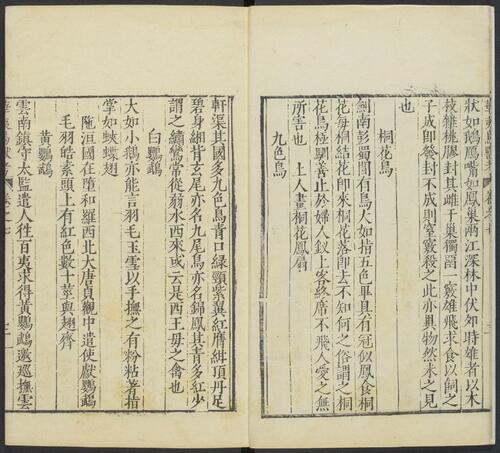 狀如鵝鴈嘴如鳳巢兩江深林中伏卵時雄者以木
枝雜桃膠封其雌于巢獨留一竅雄飛求食以飼之
子成卽發封不成則窒竅殺之此亦異物然未之見
也
桐花鳥
劍南彭蜀間有鳥大如指五色畢具有冠似鳳食桐
花每桐結花卽來桐花落卽去不知何之俗謂之桐
花鳥極馴善止於婦人釵上客終席不飛人愛之無
所害也　上人畫桐花鳳扇
九色鳥
軒渠其國多九色鳥青口綠頸紫翼紅膺紺頂丹足
碧身緗背玄尾亦名九尾鳥亦名錦鳳其青多紅少
謂之繡鸞常從弱水西來或云是西王母之禽也
白鸚鵡
大如小鵝亦能言羽毛玉雪以手撫之有粉粘著指
掌如蛺蝶翅
陁洹國在墮和羅西北大唐貞觀中遣使獻鸚鵡
毛羽皓素頭上有紅色數十莖與翅齊
黃鸚鵡
雲南鎮守太監遣人徃百夷求得黃鸚鵡邀巡撫雲